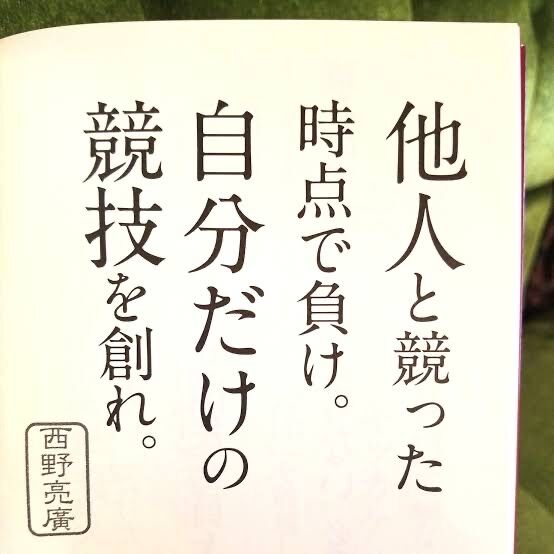 他人と競った
時点で負け。
自分だけの
競技を創れ。
西野亮廣